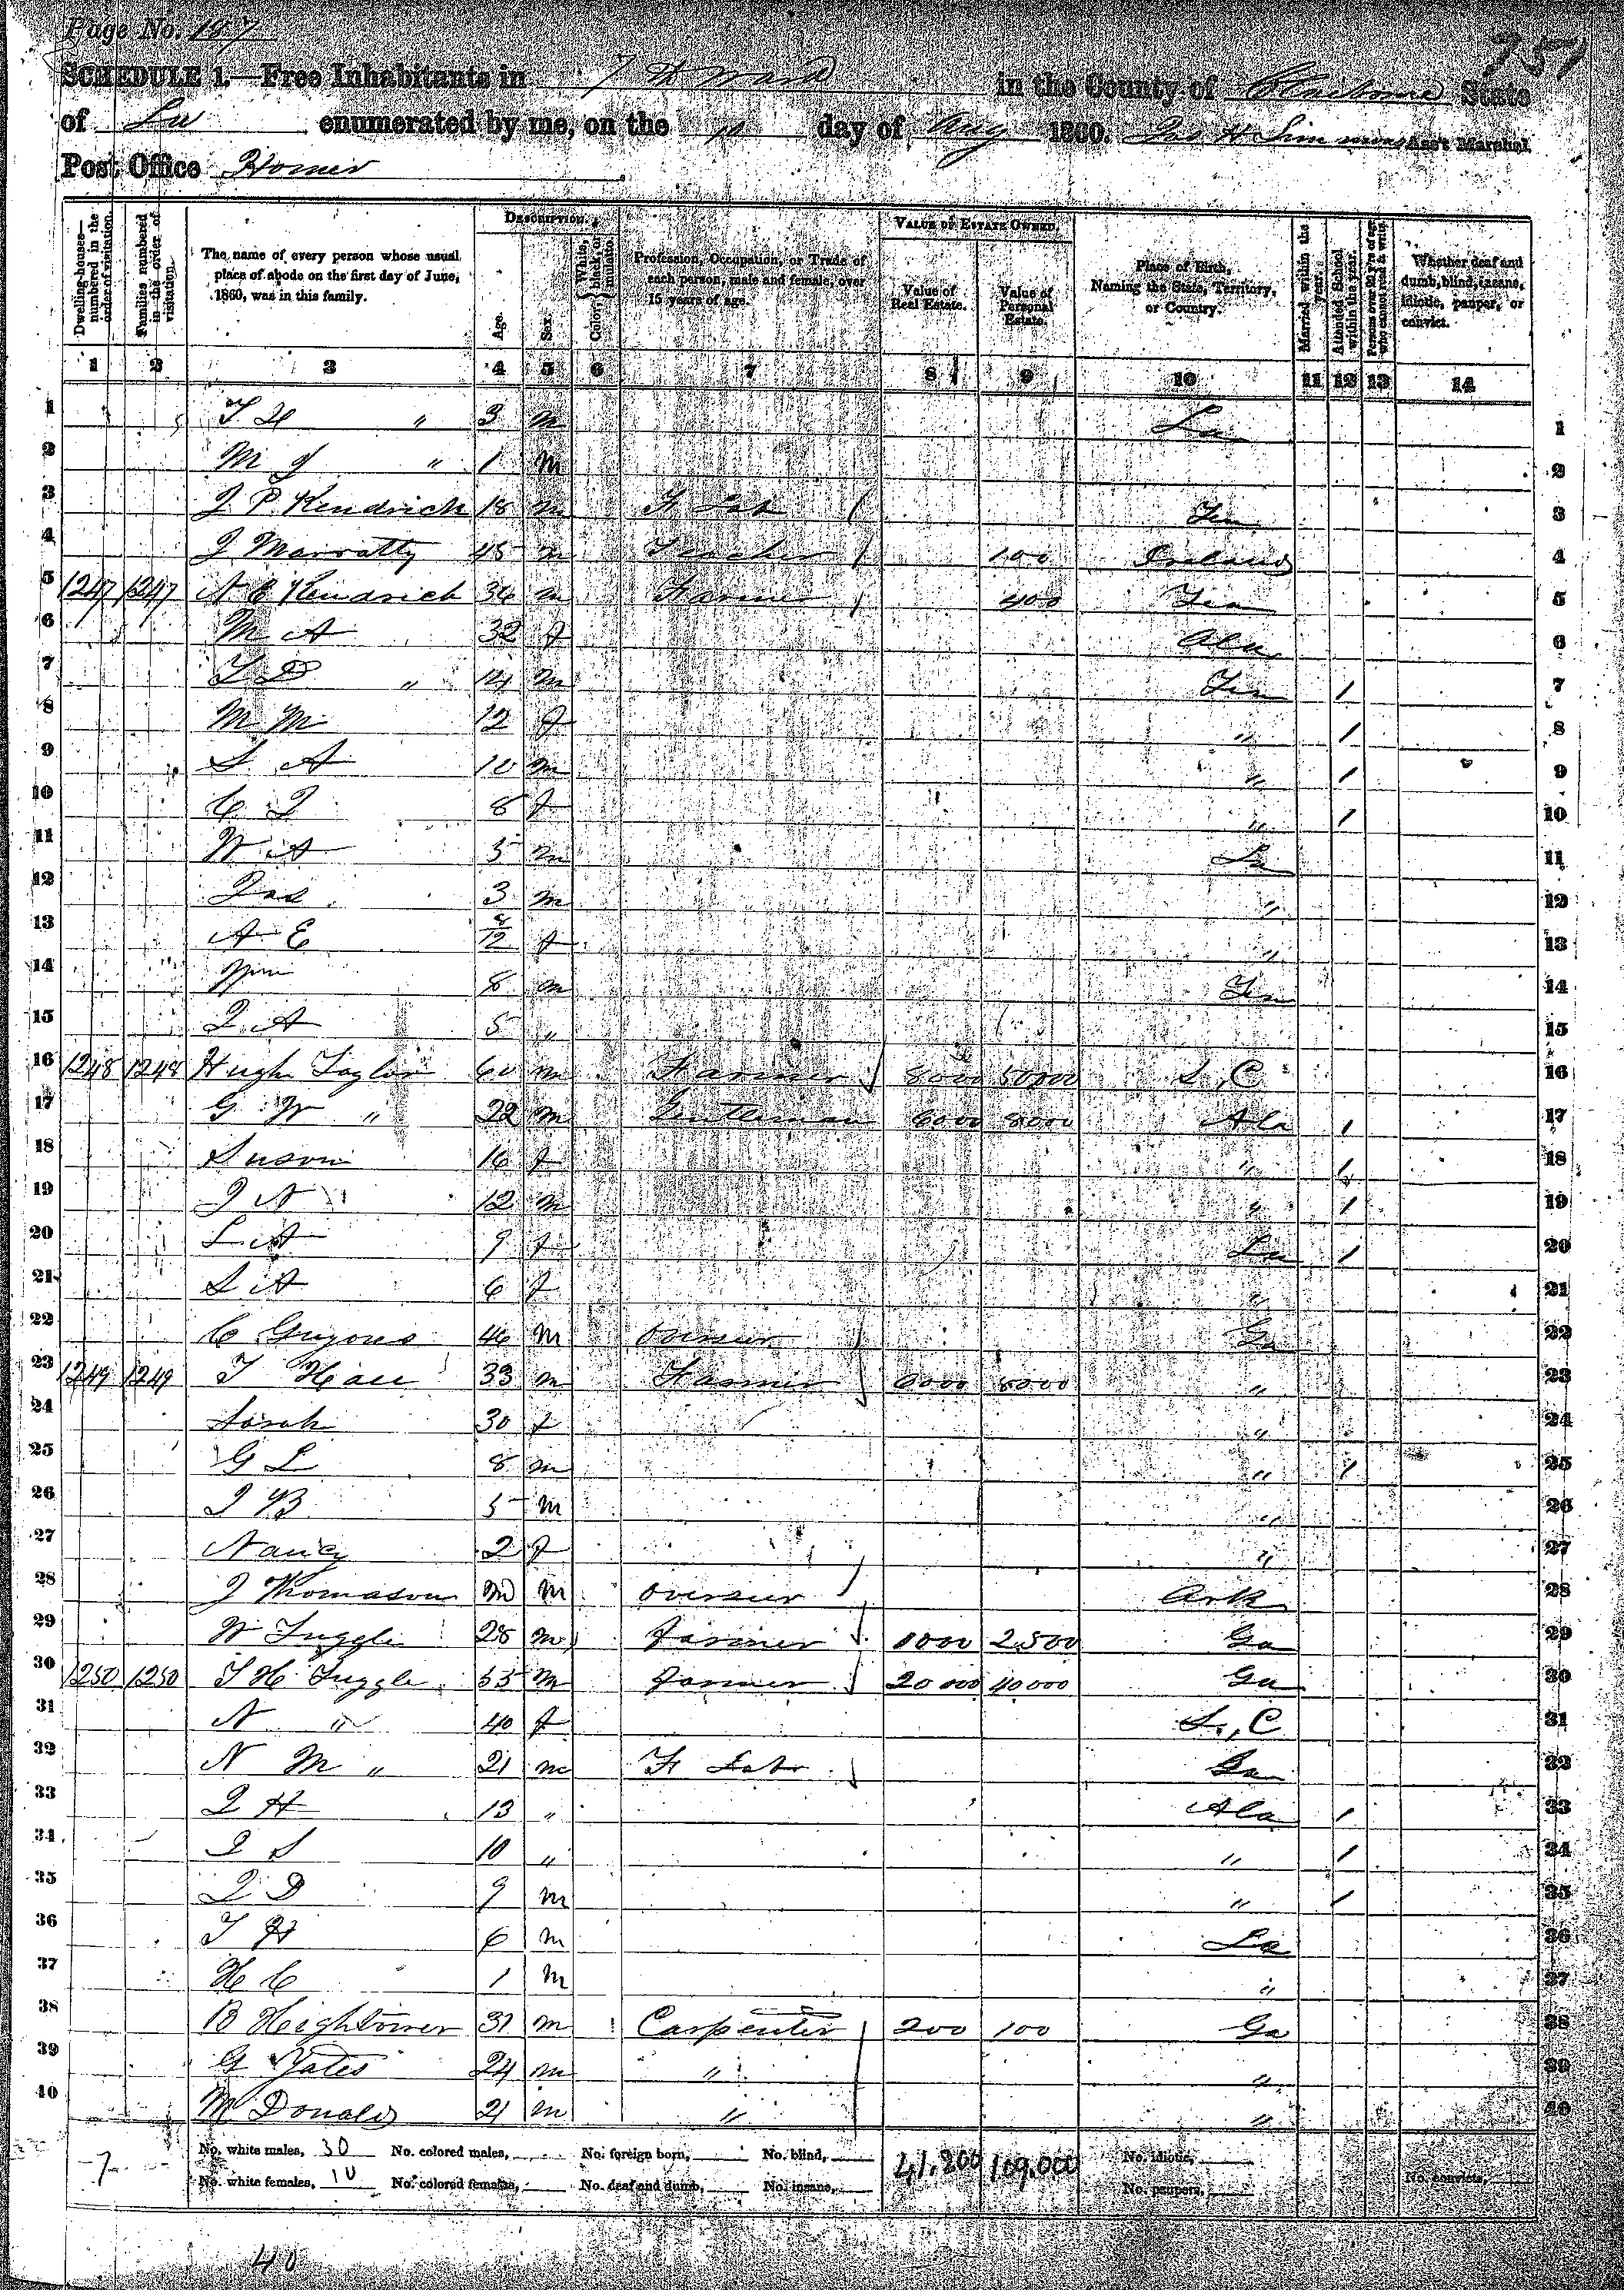 Page No. 157
751
SCHEDULE 1.—Free Inhabitants in 7th Ward in the County of Claiborne State
of La enumerated by me, on the 10 day of Aug 1860. Jas H Simmons Ass't Marshal.
Post Office Homer
Dwelling-houses—numbered in the order of visitation. Families numbered in the order of visitation. The name of every person whose usual place of abode on the first day of June, 1860, was in this family. DESCRIPTION. Age. Sex. Color, { White, black, or mulatto. Profession, Occupation, or Trade of each person, male and female, over 15 years of age. VALUE OF ESTATE OWNED. Value of Real Estate. Value of Personal Estate. Place of Birth, Naming the State, Territory, or Country. Married within the year. Attended School within the year. Persons over 20 y'rs of age who cannot read & write. Whether deaf and dumb, blind, insane, idiotic, pauper, or convict.
1 2 3 4 5 6 7 8 9 10 11 12 13 14
1 " 3 m La 1
2 M J " 1 m 2
3 J P Kendrick 18 m F Lab Ten 3
4 J Marratty 45 m Teacher 100 Ireland 4
5 1247 1247 A E Kendrick 36 m Farmer 400 Ten 5
6 M A 32 f Ala 6
7 T D " 14 m Ten / 7
8 M M 12 f " / 8
9 S A 10 m " / 9
10 C J 8 f " / 10
11 W A 5 m La 11
12 Jas 3 m " 12
13 A E 8/12 f " 13
14 Wm 8 m Ten 14
15 J A 5 " 15
16 1248 1248 Hugh Taylor 60 m Farmer 8000 50000 S,C 16
17 G W " 22 m Gentleman 6000 8000 Ala / 17
18 Suson 16 f " / 18
19 J A 12 m " / 19
20 L A 9 f La / 20
21 S A 6 f " 21
22 C 46 m Overseer Ga 22
23 1249 1249 T 33 m Farmer 6000 8000 " 23
24 Sarah 30 f " 24
25 G L 8 m " / 25
26 J B 5 m " 26
27 Nancy 2 f " 27
28 J Thomason m overseer Ark 28
29 W Tuggle 28 m farmer 1000 2,500 Ga 29
30 1250 1250 T H Tuggle 55 m farmer 20000 40000 Ga 30
31 N " 40 f S.,C 31
32 N M " 21 m F Lab Ga 32
33 J H 13 " Ala / 33
34 J S 10 " " / 34
35 J D 9 m " / 35
36 T H 6 m La 36
37 H C 1 m " 37
38 B Hightower 31 m Carpenter 200 100 Ga 38
39 G Yates 24 m " " 39
40 M Donald 21 m " " 40
No. white males, 30 No. colored males, No. foreign born, No. blind, 41,200 109,000 No. idiotic,
No. white females, 10 No. colored females, No. deaf and dumb, No. insane, No. paupers, No. convicts,
7
40